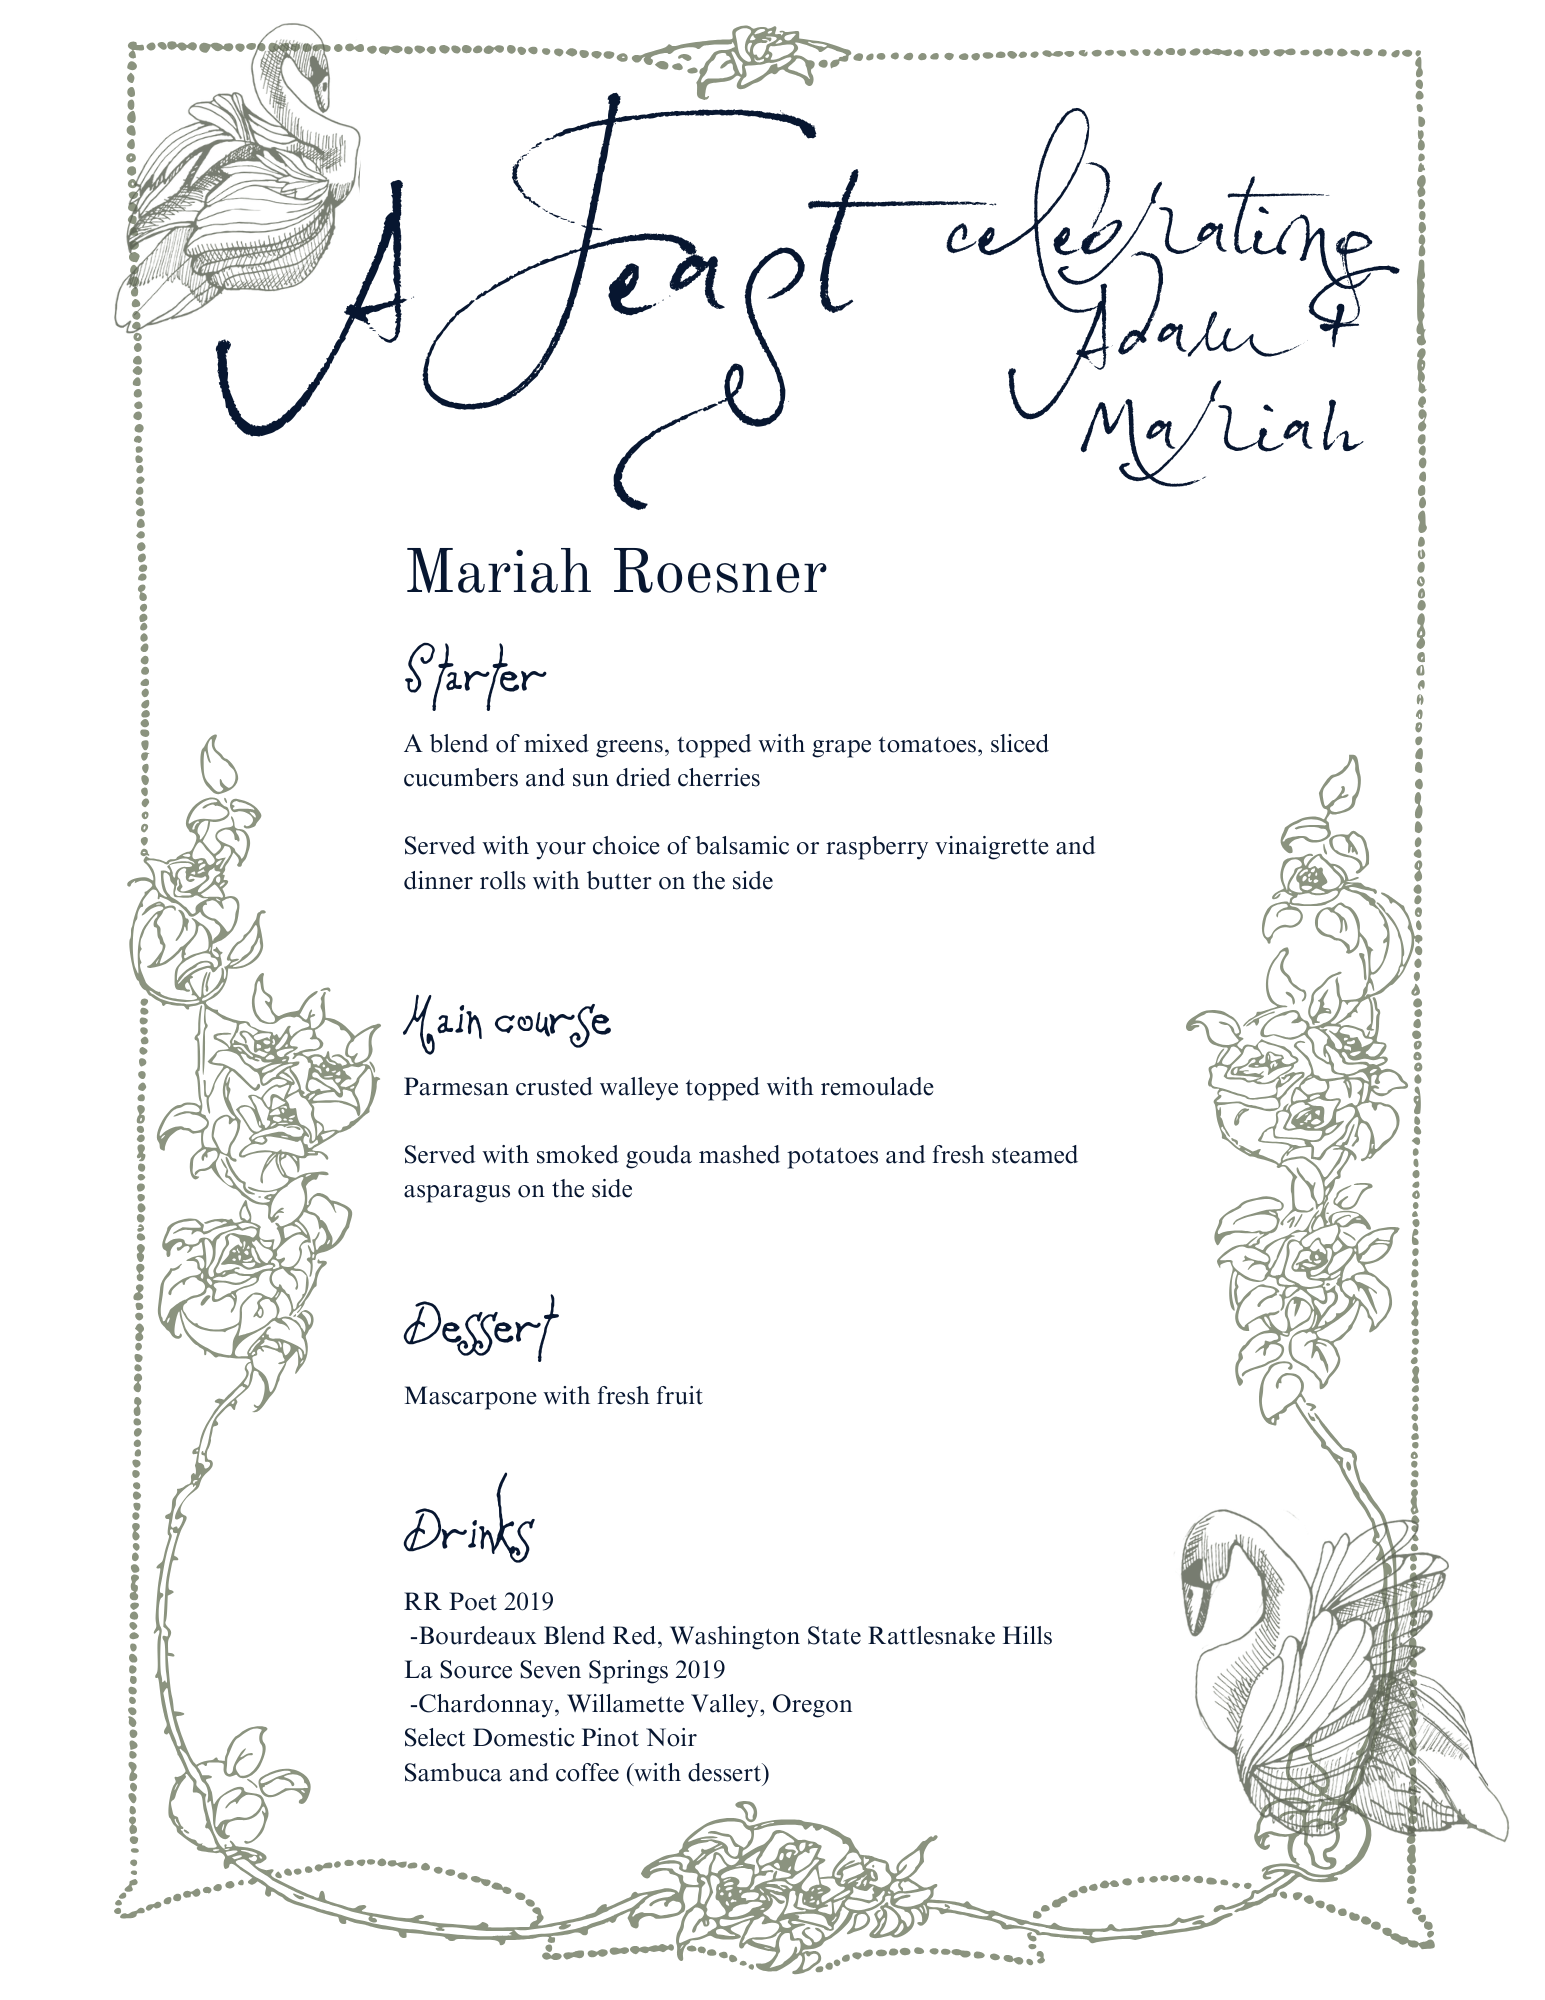 A Feast
celebrating
Adam &
Mariah
Mariah Roesner
Starter
A blend of mixed greens, topped with grape tomatoes, sliced
cucumbers and sun dried cherries
Served with your choice of balsamic or raspberry vinaigrette and
dinner rolls with butter on the side
Main course
Parmesan crusted walleye topped with remoulade
Served with smoked gouda mashed potatoes and fresh steamed
asparagus on the side
Dessert
Mascarpone with fresh fruit
Drinks
RR Poet 2019
-Bourdeaux Blend Red, Washington State Rattlesnake Hills
La Source Seven Springs 2019
-Chardonnay, Willamette Valley, Oregon
Select Domestic Pinot Noir
Sambuca and coffee (with dessert)